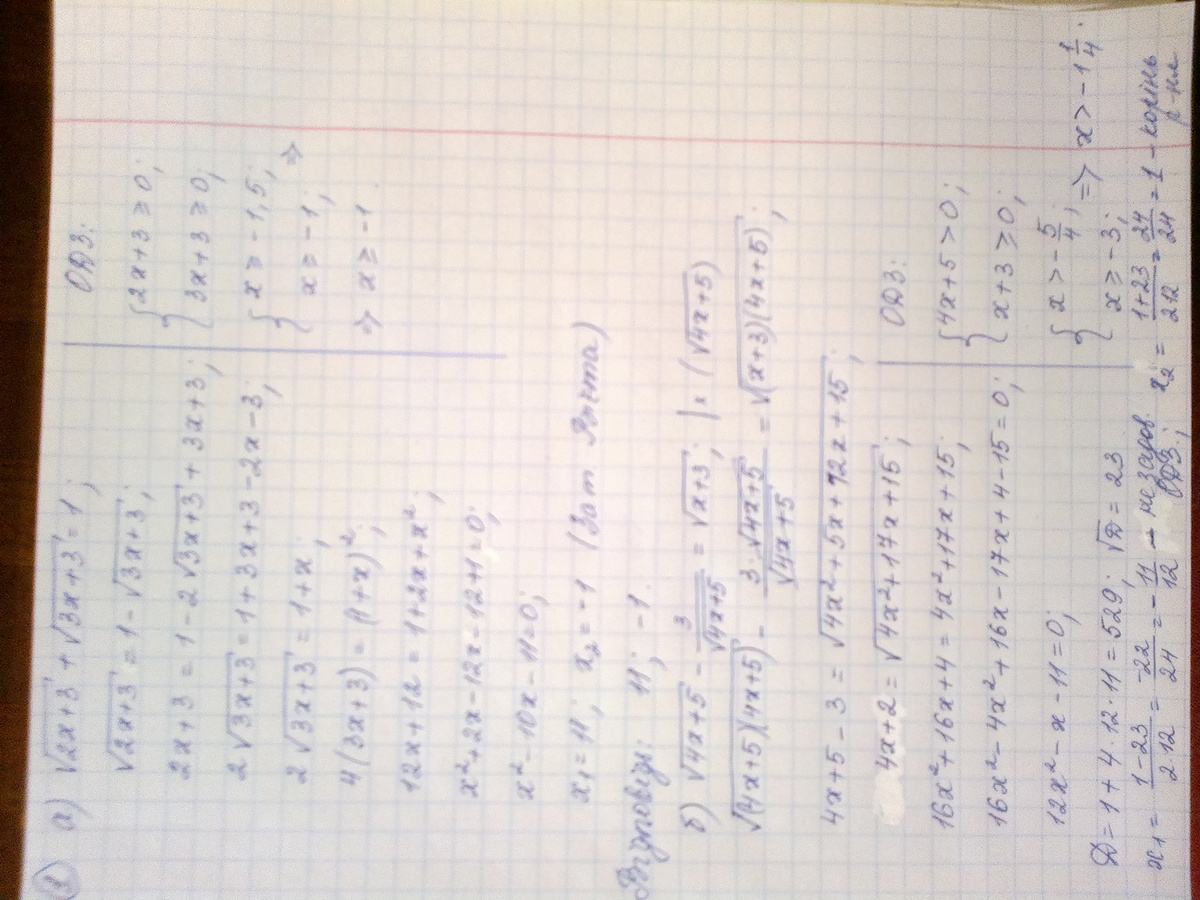 1
а) √(2x+3) + √(3x+3) = 1;
√(2x+3) = 1 - √(3x+3);
2x+3 = 1 - 2√(3x+3) + 3x+3;
2√(3x+3) = 1+3x+3-2x-3;
2√(3x+3) = 1+x;
4(3x+3) = (1+x)²;
12x+12 = 1+2x+x²;
x²+2x-12x-12+1=0;
x²-10x-11=0;
x₁=11; x₂=-1 (За т Вієта)
ОДЗ:
{2x+3≥0;
3x+3≥0;
{x≥-1,5;
x≥-1; ⇒
⇒ x≥-1
Відповідь: 11; -1.
б) √(4x+5) - 3/√(4x+5) = √(x+3); |×(√(4x+5))
√((4x+5)(4x+5)) - 3·√(4x+5)/√(4x+5) = √((x+3)(4x+5));
4x+5-3 = √(4x²+5x+12x+15);
4x+2 = √(4x²+17x+15);
16x²+16x+4 = 4x²+17x+15;
16x²-4x²+16x-17x+4-15=0;
12x²-x-11=0;
ОДЗ:
{4x+5>0;
x+3≥0;
{x>-5/4;
x≥-3; ⇒ x>-1 1/4.
D=1+4·12·11=529; √D=23
x₁ = (1-23)/(2·12) = -22/24 = -11/12 - не задов. ОДЗ; x₂ = (1+23)/(2·12) = 24/24 = 1 - корінь р-ня